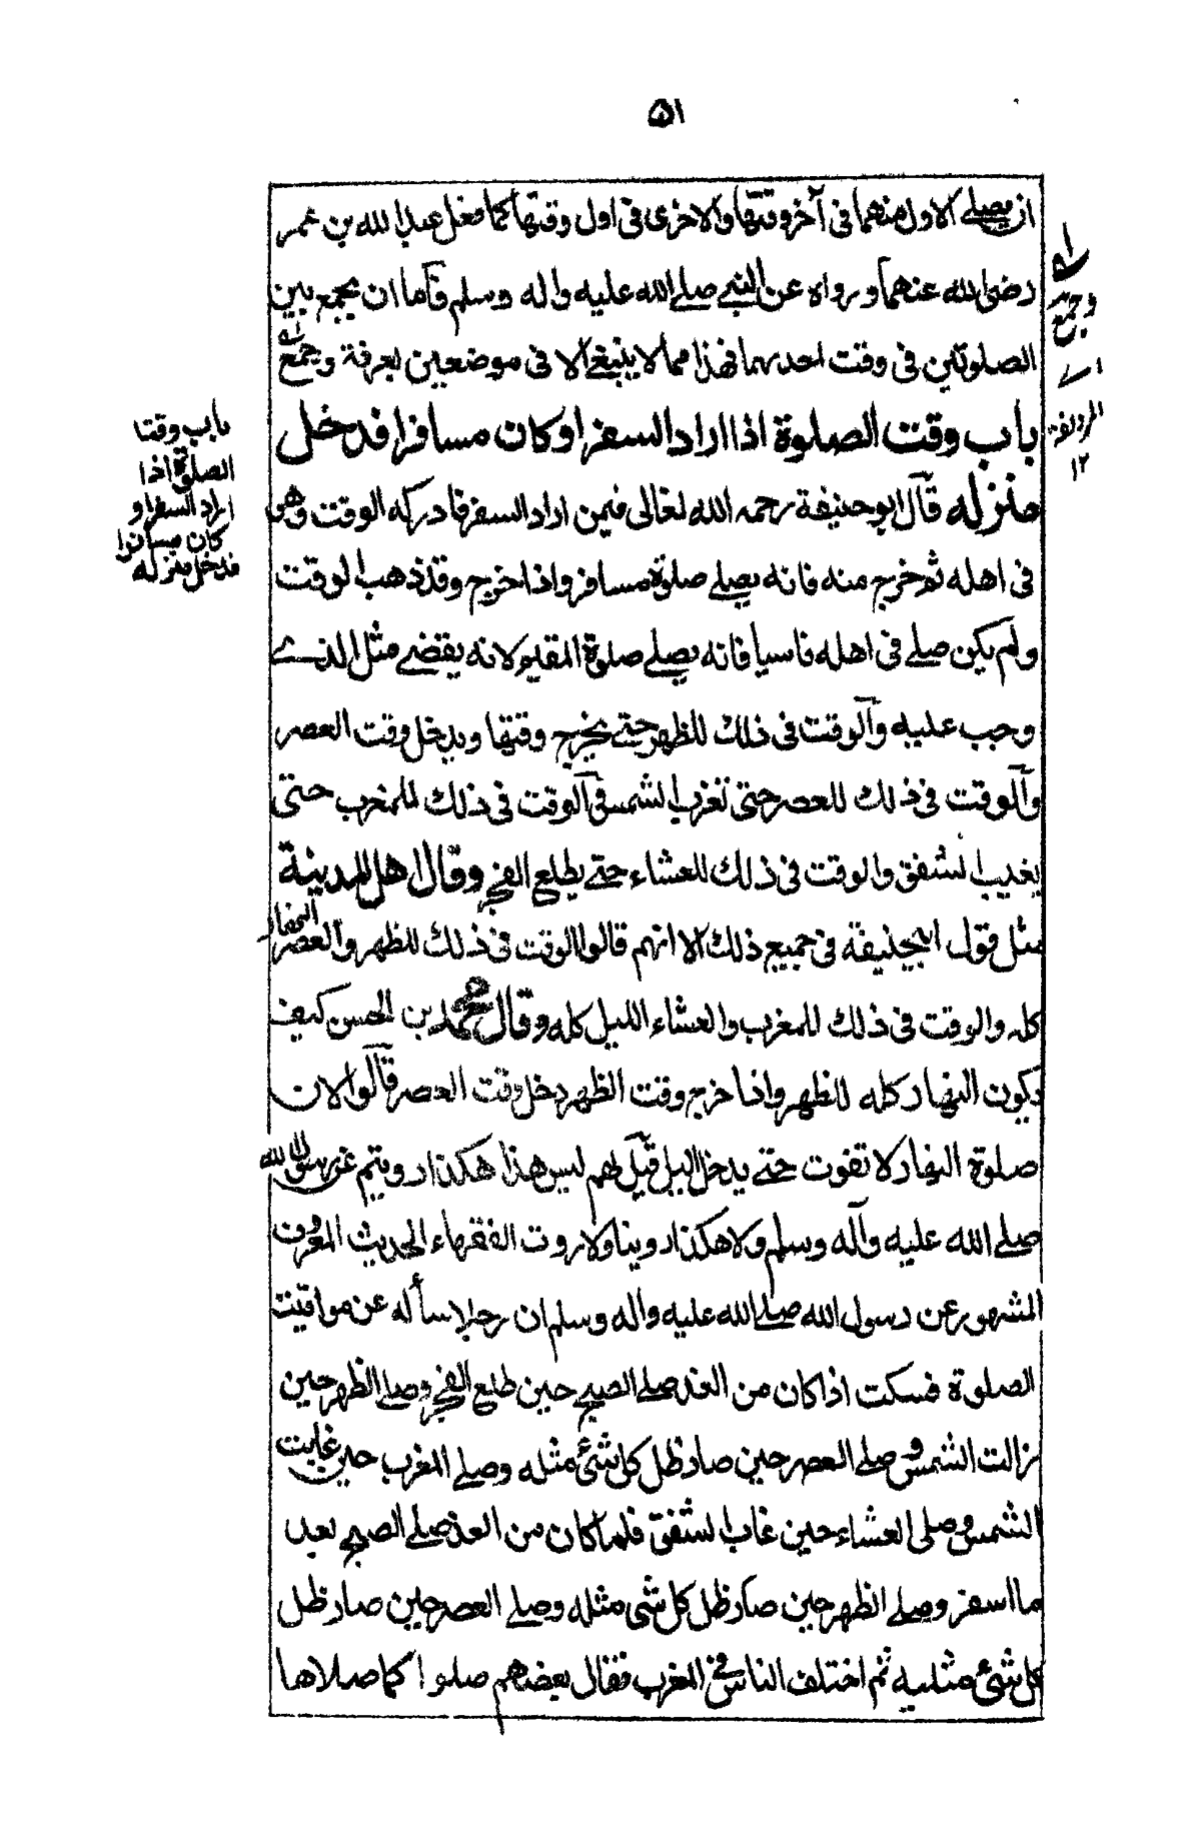 ٥١
ان يصلے الاول منهما فى آخر وقتها والاخرى فى اول وقتها كما فعل عبد الله بن عمر
رضى الله عنهما ورواه عن النبے صلے الله عليه واله وسلم فآما ان يجمع بين
الصلوتين فى وقت احدهما فهذا مما لا ينبغے الا فى موضعين بعرفة وجمع
باب وقت الصلوة اذا اراد السفر او كان مسافرا فدخل
منزله قآل ابو حنيفة رحمه الله تعالى فيمن اراد السفر فادركه الوقت وهو
فى اهله ثم خرج منه فانه يصلے صلوة مسافر واذا خرج وقد ذهب الوقت
ولم يكن صلے فى اهله ناسيا فانه يصلے صلوة المقيم لانه يقضے مثل الذے
وجب عليه وآلوقت فى ذلك للظهر حتے يخرج وقتها ويدخل وقت العصر
وآلوقت فى ذلك للعصر حتى تغرب الشمس وآلوقت فى ذلك للمغرب حتى
يغيب الشفق والوقت فى ذلك للعشاء حتے يطلع الفجر وقال اهل المدينة
مثل قول ابيحنيفة فى جميع ذلك الا انهم قالوا الوقت فى ذلك للظهر وآلعصر النهار
كله والوقت فى ذلك للمغرب والعشاء الليل كله وقال محمد بن الحسن كيف
يكون النهار كله للظهر واذا خرج وقت الظهر دخل وقت العصر قآلوا لان
صلوة النهار لا تفوت حتے يدخل الليل قيل لهم ليس هذا هكذا رويتم عن رسول الله
صلے الله عليه وآله وسلم ولا هكذا روينا ولا روت الفقهاء الحديث المعروف
المشهور عن رسول الله صلے الله عليه واله وسلم ان رجلا سأله عن مواقيت
الصلوة فسكت اذا كان من الغد صلے الصبح حين طلع الفجر وصلے الظهر حين
زالت الشمس وصلے العصر حين صار ظل كل شئ مثله وصلے المغرب حين غابت
الشمس وصلى العشاء حين غاب الشفق فلما كان من الغد صلے الصبح بعد
ما اسفر وصلے الظهر حين صار ظل كل شى مثله وصلے العصر حين صار ظل
كل شئ مثليه ثم اختلف الناس فى المغرب فقال بعضهم صلوا كما صلاها
وجمع
اے
المزدلفة
١٢
باب وقت
الصلوة اذا
اراد السفر او
كان مسافرا
فدخل منزله